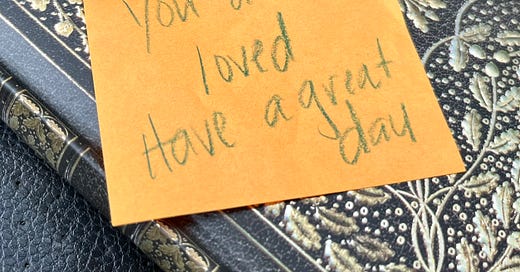 You
loved
Have a great
day